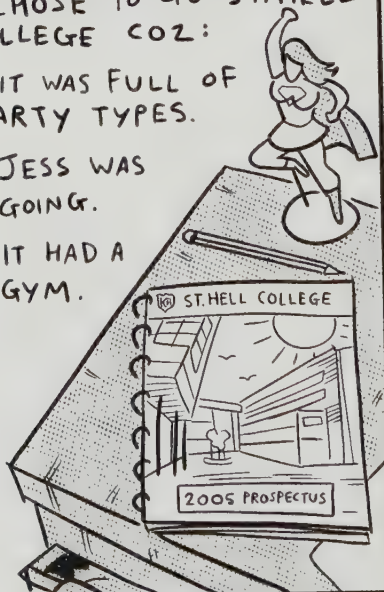 CHOSE TO GO ST.HELL
LLEGE COZ:
IT WAS FULL OF
ARTY TYPES.
JESS WAS
GOING.
IT HAD A
GYM.
ST.HELL COLLEGE
2005 PROSPECTUS